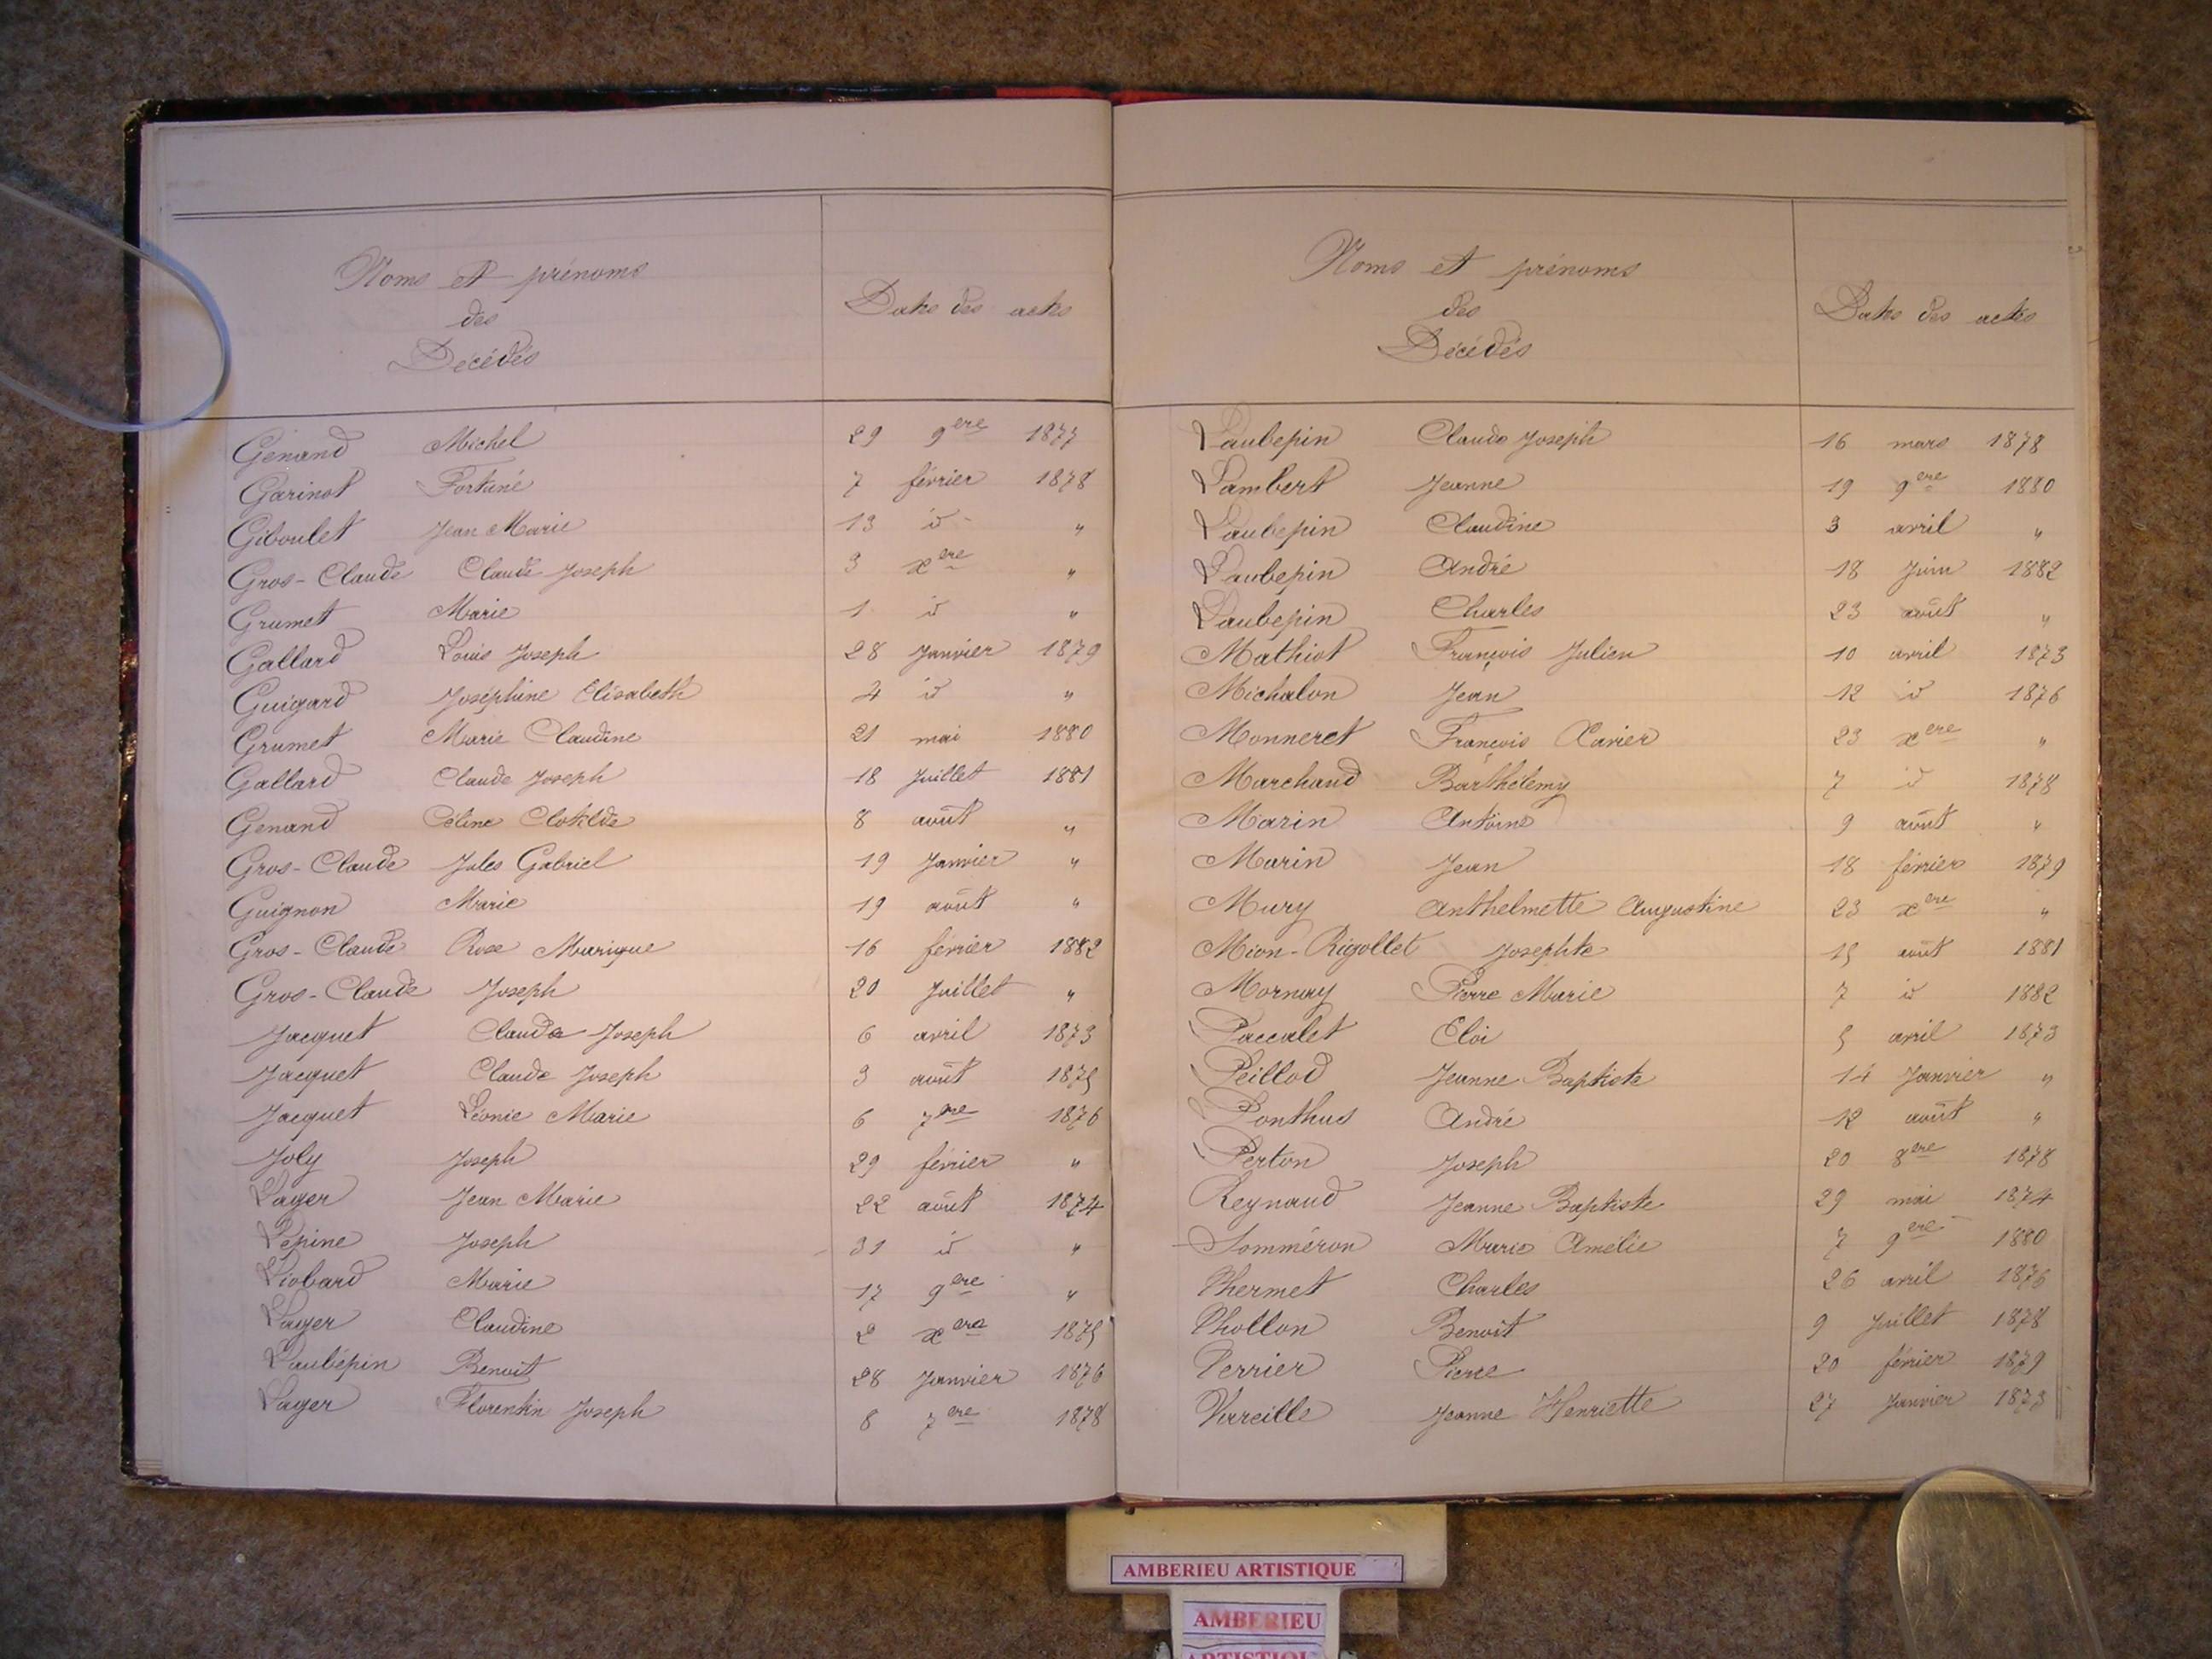 Noms et prénoms
des
Décédés
Dates des actes
Génand Michel 29 9ere 1877
Garinot Fortuné 7 février 1878
Giboulet Jean Marie 13 id "
Gros-Claude Claude Joseph 3 xere "
Grumet Marie 1 id "
Gallard Louis Joseph 28 Janvier 1879
Guigard Joséphine Elisabeth 4 id "
Grumet Marie Claudine 21 mai 1880
Gallard Claude Joseph 18 Juillet 1881
Genand Céline Clotilde 8 août "
Gros-Claude Jules Gabriel 19 Janvier "
Guignon Marie 19 août "
Gros-Claude Rose Marique 16 février 1882
Gros-Claude Joseph 20 Juillet "
Jacquet Claude Joseph 6 avril 1873
Jacquet Claude Joseph 3 août 1875
Jacquet Léonie Marie 6 7ere 1876
Joly Joseph 29 février "
Layer Jean Marie 22 août 1874
Lépine Joseph 31 id "
Liobard Marie 17 9ere "
Layer Claudine 2 xere 1875
Laubépin Benoit 28 Janvier 1876
Layer Florentin Joseph 8 7ere 1878
Noms et prénoms
des
Décédés
Dates des actes
Laubepin Claude Joseph 16 mars 1878
Lambert Jeanne 19 9ere 1880
Laubepin Claudine 3 avril "
Laubepin André 18 Juin 1882
Laubepin Charles 23 août "
Mathiot François Julien 10 avril 1873
Michalon Jean 12 id 1876
Monneret François Xavier 23 xere "
Marchand Barthélemy 7 id 1878
Marin Antoine 9 août "
Marin Jean 18 février 1879
Mury Anthelmette Augustine 23 xere "
Mion-Rigollet Josephte 15 août 1881
Mornay Pierre Marie 7 id 1882
Paccalet Eloi 5 avril 1873
Peillod Jeanne Baptiste 14 Janvier "
Ponthus André 12 août "
Perton Joseph 20 8ere 1878
Reynaud Jeanne Baptiste 29 mai 1874
Somméron Marie Amélie 7 9ere 1880
Thermet Charles 26 avril 1876
Thollon Benoît 9 Juillet 1878
Terrier Pierre 20 février 1879
Vareille Jeanne Henriette 27 Janvier 1873
AMBERIEU ARTISTIQUE
AMBERIEU